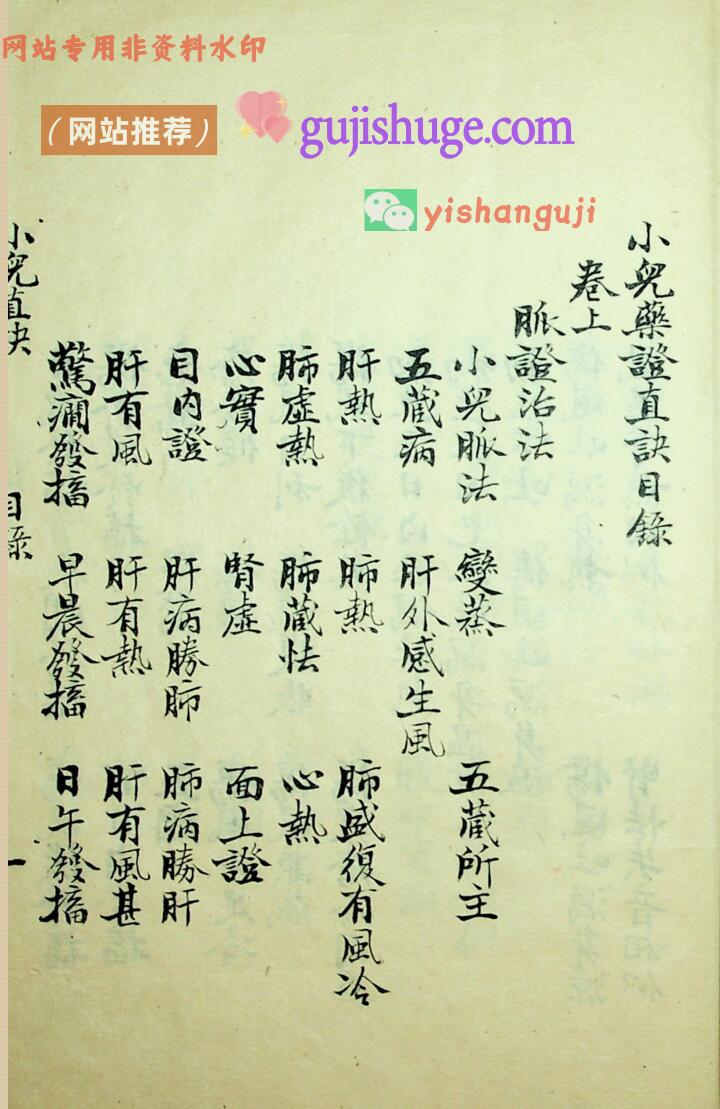 网站专用非资料水印
（网站推荐）
gujishuge.com
yishanguji
小兒藥證直訣目錄
卷上
脈證治法
小兒脈法 變蒸 五藏所主
五藏病 肝外感生風
肝熱 肺熱 肺盛復有風冷
肺虛熱 肺藏怯 心熱
心實 腎虛 面上證
目內證 肝病勝肺 肺病勝肝
肝有風 肝有熱 肝有風甚
驚癇發搐 早晨發搐 日午發搐
小兒直訣 目錄 一